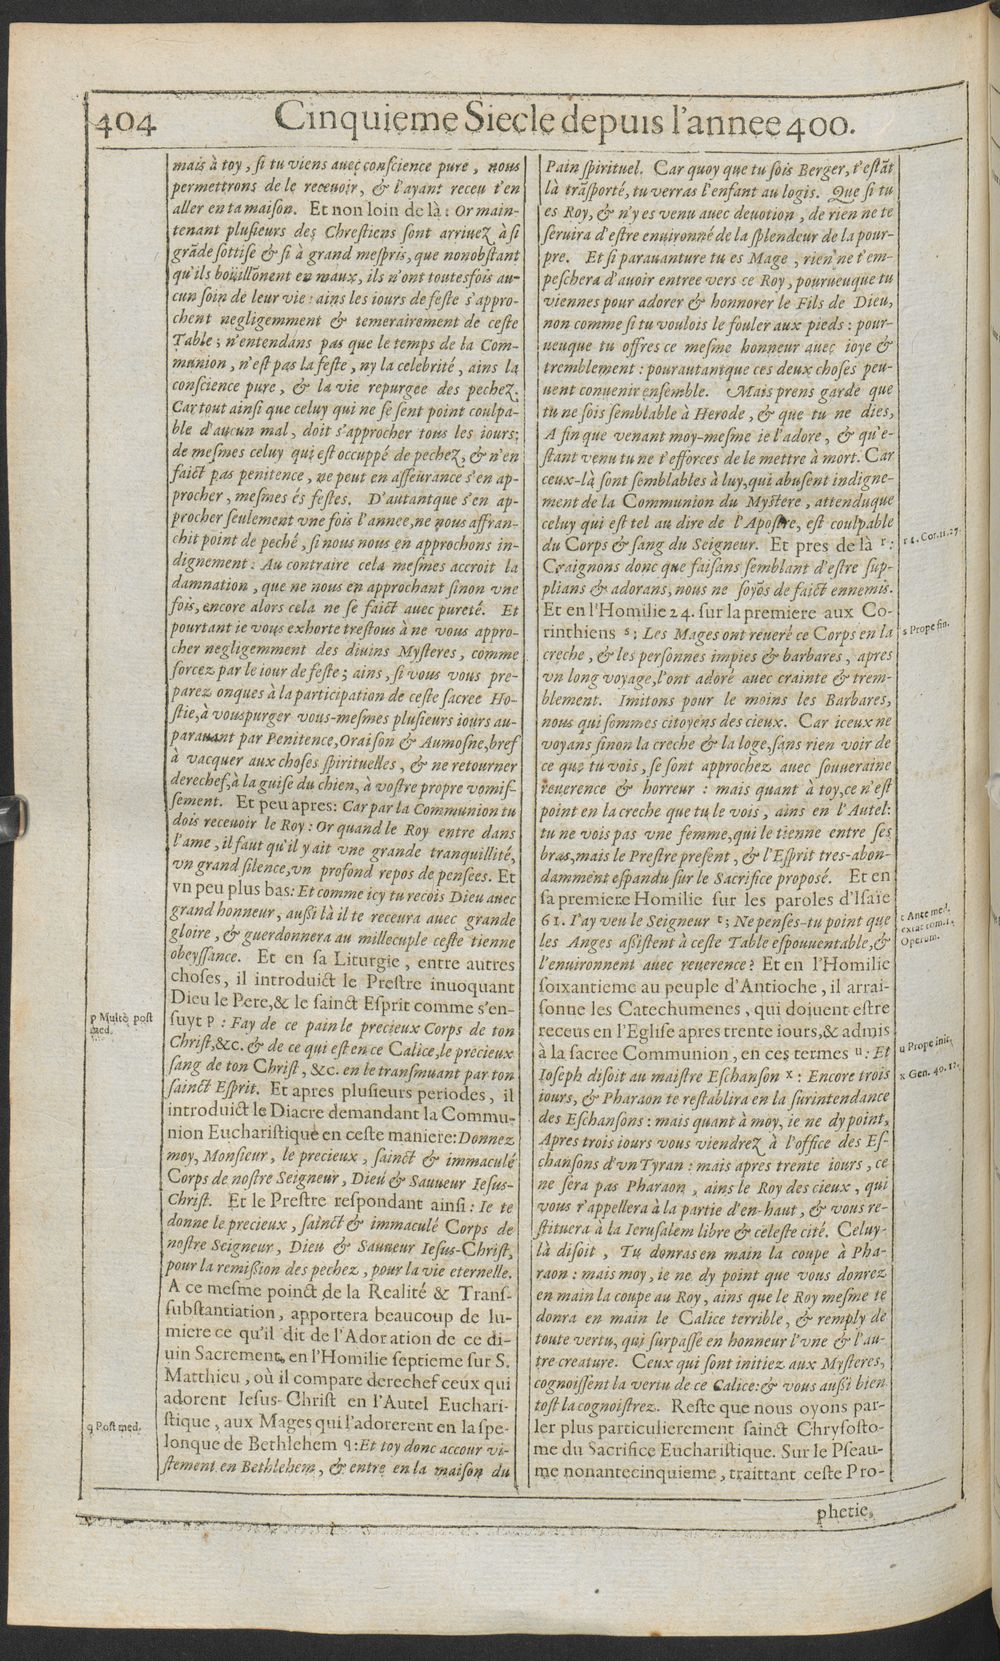 404 Cinquieme Siecle depuis l'annee 400.
mais à toy, si tu viens auec conscience pure, nous
permettrons de le receuoir, & l'ayant receu t'en
aller en ta maison. Et non loin de là: Or main-
tenant plusieurs des Chrestiens sont arriuez à si
grãde sottise & si à grand mespris, que nonobstant
qu'ils boüillõnent en maux, ils n'ont toutesfois au-
cun soin de leur vie: ains les iours de feste s'appro-
chent negligemment & temerairement de ceste
Table; n'entendans pas que le temps de la Com-
munion, n'est pas la feste, ny la celebrité, ains la
conscience pure, & la vie repurgee des pechez.
Car tout ainsi que celuy qui ne se sent point coulpa-
ble d'aucun mal, doit s'approcher tous les iours;
de mesmes celuy qui est occuppé de pechez, & n'en
faict pas penitence, ne peut en asseurance s'en ap-
procher, mesmes és festes. D'autantque s'en ap-
procher seulement vne fois l'annee, ne nous affran-
chit point de peché, si nous nous en approchons in-
dignement: Au contraire cela mesmes accroit la
damnation, que ne nous en approchant sinon vne
fois, encore alors cela ne se faict auec pureté. Et
pourtant ie vous exhorte trestous à ne vous appro-
cher negligemment des diuins Mysteres, comme
forcez par le iour de feste; ains, si vous vous pre-
parez onques à la participation de ceste sacree Ho-
stie, à vous purger vous-mesmes plusieurs iours au-
parauant par Penitence, Oraison & Aumosne, bref
à vacquer aux choses spirituelles, & ne retourner
derechef, à la guise du chien, à vostre propre vomis-
sement. Et peu apres: Car par la Communion tu
dois receuoir le Roy: Or quand le Roy entre dans
l'ame, il faut qu'il y ait vne grande tranquillité,
vn grand silence, vn profond repos de pensees. Et
vn peu plus bas: Et comme icy tu recois Dieu auec
grand honneur, aussi là il te receura auec grande
gloire, & guerdonnera au millecuple ceste tienne
obeyssance. Et en sa Liturgie, entre autres
choses, il introduict le Prestre inuoquant
Dieu le Pere, & le sainct Esprit comme s'en-
suyt p: Fay de ce pain le precieux Corps de ton
Christ, &c. & de ce qui est en ce Calice, le precieux
sang de ton Christ, &c. en le transmuant par ton
sainct Esprit. Et apres plusieurs periodes, il
introduict le Diacre demandant la Commu-
nion Eucharistique en ceste maniere: Donnez
moy, Monsieur, le precieux, sainct & immaculé
Corps de nostre Seigneur, Dieu & Sauueur Iesus-
Christ. Et le Prestre respondant ainsi: Ie te
donne le precieux, sainct & immaculé Corps de
nostre Seigneur, Dieu & Sauueur Iesus-Christ,
pour la remission des pechez, pour la vie eternelle.
A ce mesme poinct de la Realité & Trans-
substantiation, apportera beaucoup de lu-
miere ce qu'il dit de l'Adoration de ce di-
uin Sacrement, en l'Homilie septieme sur S.
Matthieu, où il compare derechef ceux qui
adorent Iesus-Christ en l'Autel Euchari-
stique, aux Mages qui l'adorerent en la spe-
lonque de Bethlehem q: Et toy donc accour vi-
stement en Bethlehem, & entre en la maison du
p Multò post
med.
q Post med.
Pain spirituel. Car quoy que tu sois Berger, t'estãt
là trãsporté, tu verras l'enfant au logis. Que si tu
es Roy, & n'y es venu auec deuotion, de rien ne te
seruira d'estre enuironné de la splendeur de la pour-
pre. Et si parauanture tu es Mage, rien ne t'em-
peschera d'auoir entree vers ce Roy, pourueuque tu
viennes pour adorer & honnorer le Fils de Dieu,
non comme si tu voulois le fouler aux pieds: pour-
ueuque tu offres ce mesme honneur auec ioye &
tremblement: pourautantque ces deux choses peu-
uent conuenir ensemble. Mais prens garde que
tu ne sois semblable à Herode, & que tu ne dies,
A fin que venant moy-mesme ie l'adore, & qu'e-
stant venu tu ne t'efforces de le mettre à mort. Car
ceux-là sont semblables à luy, qui abusent indigne-
ment de la Communion du Mystere, attenduque
celuy qui est tel au dire de l'Apostre, est coulpable
du Corps & sang du Seigneur. Et pres de là r:
Craignons donc que faisans semblant d'estre sup-
plians & adorans, nous ne soyõs de faict ennemis.
Et en l'Homilie 24. sur la premiere aux Co-
rinthiens s: Les Mages ont reueré ce Corps en la
creche, & les personnes impies & barbares, apres
vn long voyage, l'ont adoré auec crainte & trem-
blement. Imitons pour le moins les Barbares,
nous qui sommes citoyens des cieux. Car iceux ne
voyans sinon la creche & la loge, sans rien voir de
ce que tu vois, se sont approchez auec souueraine
reuerence & horreur: mais quant à toy, ce n'est
point en la creche que tu le vois, ains en l'Autel:
tu ne vois pas vne femme, qui le tienne entre ses
bras, mais le Prestre present, & l'Esprit tres-abon-
damment espandu sur le Sacrifice proposé. Et en
sa premiere Homilie sur les paroles d'Isaïe
61. I'ay veu le Seigneur t; Ne penses-tu point que
les Anges assistent à ceste Table espouuentable, &
l'enuironnent auec reuerence? Et en l'Homilie
soixantieme au peuple d'Antioche, il arrai-
sonne les Catechumenes, qui doiuent estre
receus en l'Eglise apres trente iours, & admis
à la sacree Communion, en ces termes u: Et
Ioseph disoit au maistre Eschanson x: Encore trois
iours, & Pharaon te restablira en la surintendance
des Eschansons: mais quant à moy, ie ne dy point,
Apres trois iours vous viendrez à l'office des Es-
chansons d'vn Tyran: mais apres trente iours, ce
ne sera pas Pharaon, ains le Roy des cieux, qui
vous r'appellera à la partie d'en-haut, & vous re-
stituera à la Ierusalem libre & celeste cité. Celuy-
là disoit, Tu donras en main la coupe à Pha-
raon: mais moy, ie ne dy point que vous donrez
en main la coupe au Roy, ains que le Roy mesme te
donra en main le Calice terrible, & remply de
toute vertu, qui surpasse en honneur l'vne & l'au-
tre creature. Ceux qui sont initiez aux Mysteres,
cognoissent la vertu de ce Calice: & vous aussi bien
tost la cognoistrez. Reste que nous oyons par-
ler plus particulierement sainct Chrysosto-
me du Sacrifice Eucharistique. Sur le Pseau-
me nonantecinquieme, traittant ceste Pro-
r 1. Cor. 11. 27.
s Prope fin.
t Ante med.
extat tom. 1.
Operum.
u Prope init.
x Gen. 40. 12.
phetie,